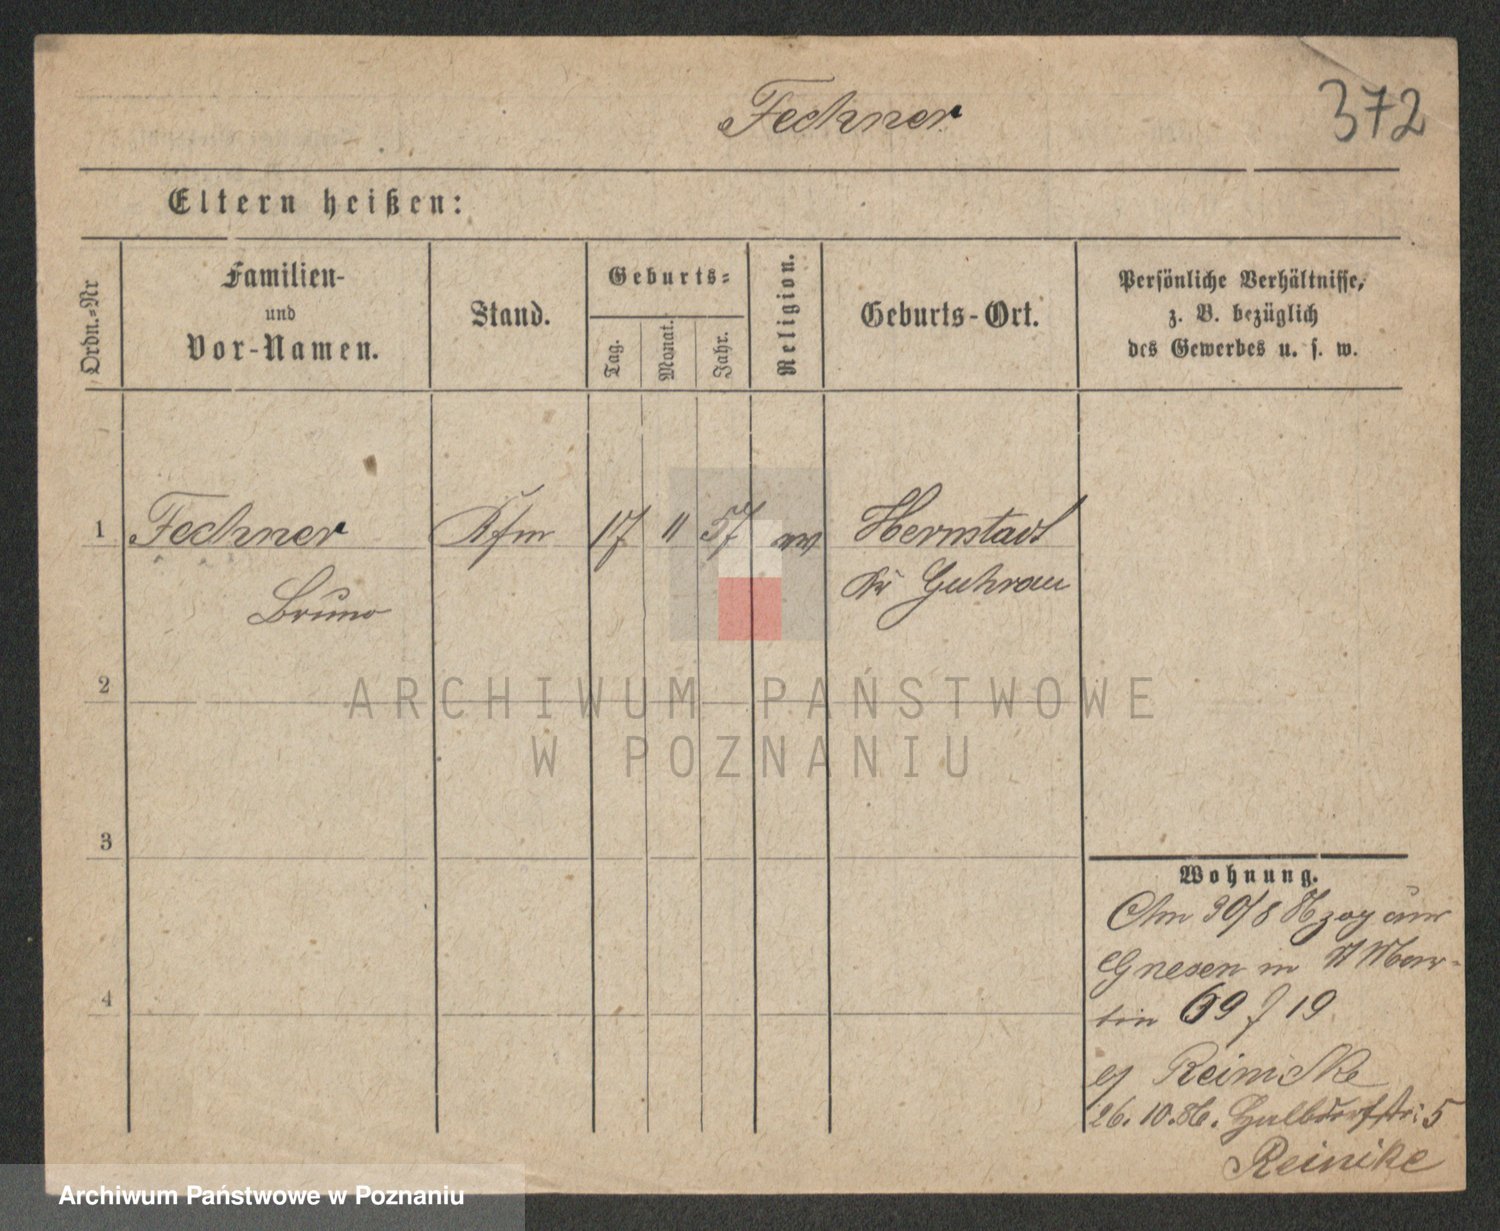 Fechner
372
Eltern heißen:
Ordn.=Nr
Familien-
und
Vor-Namen.
Stand.
Geburts=
Tag.
Monat.
Jahr.
Religion.
Geburts-Ort.
Persönliche Verhältnisse,
z. B. bezüglich
des Gewerbes u. s. w.
1 Fechner Kfm 17 11 57 Hernstadt
Bruno Kr Guhrau
2
3
4
Wohnung.
30/8 zog
Gnesen in St Mar-
tin 69 19
Reinicke
26.10.86. 5
Reinike
ARCHIWUM PAŃSTWOWE
W POZNANIU
Archiwum Państwowe w Poznaniu